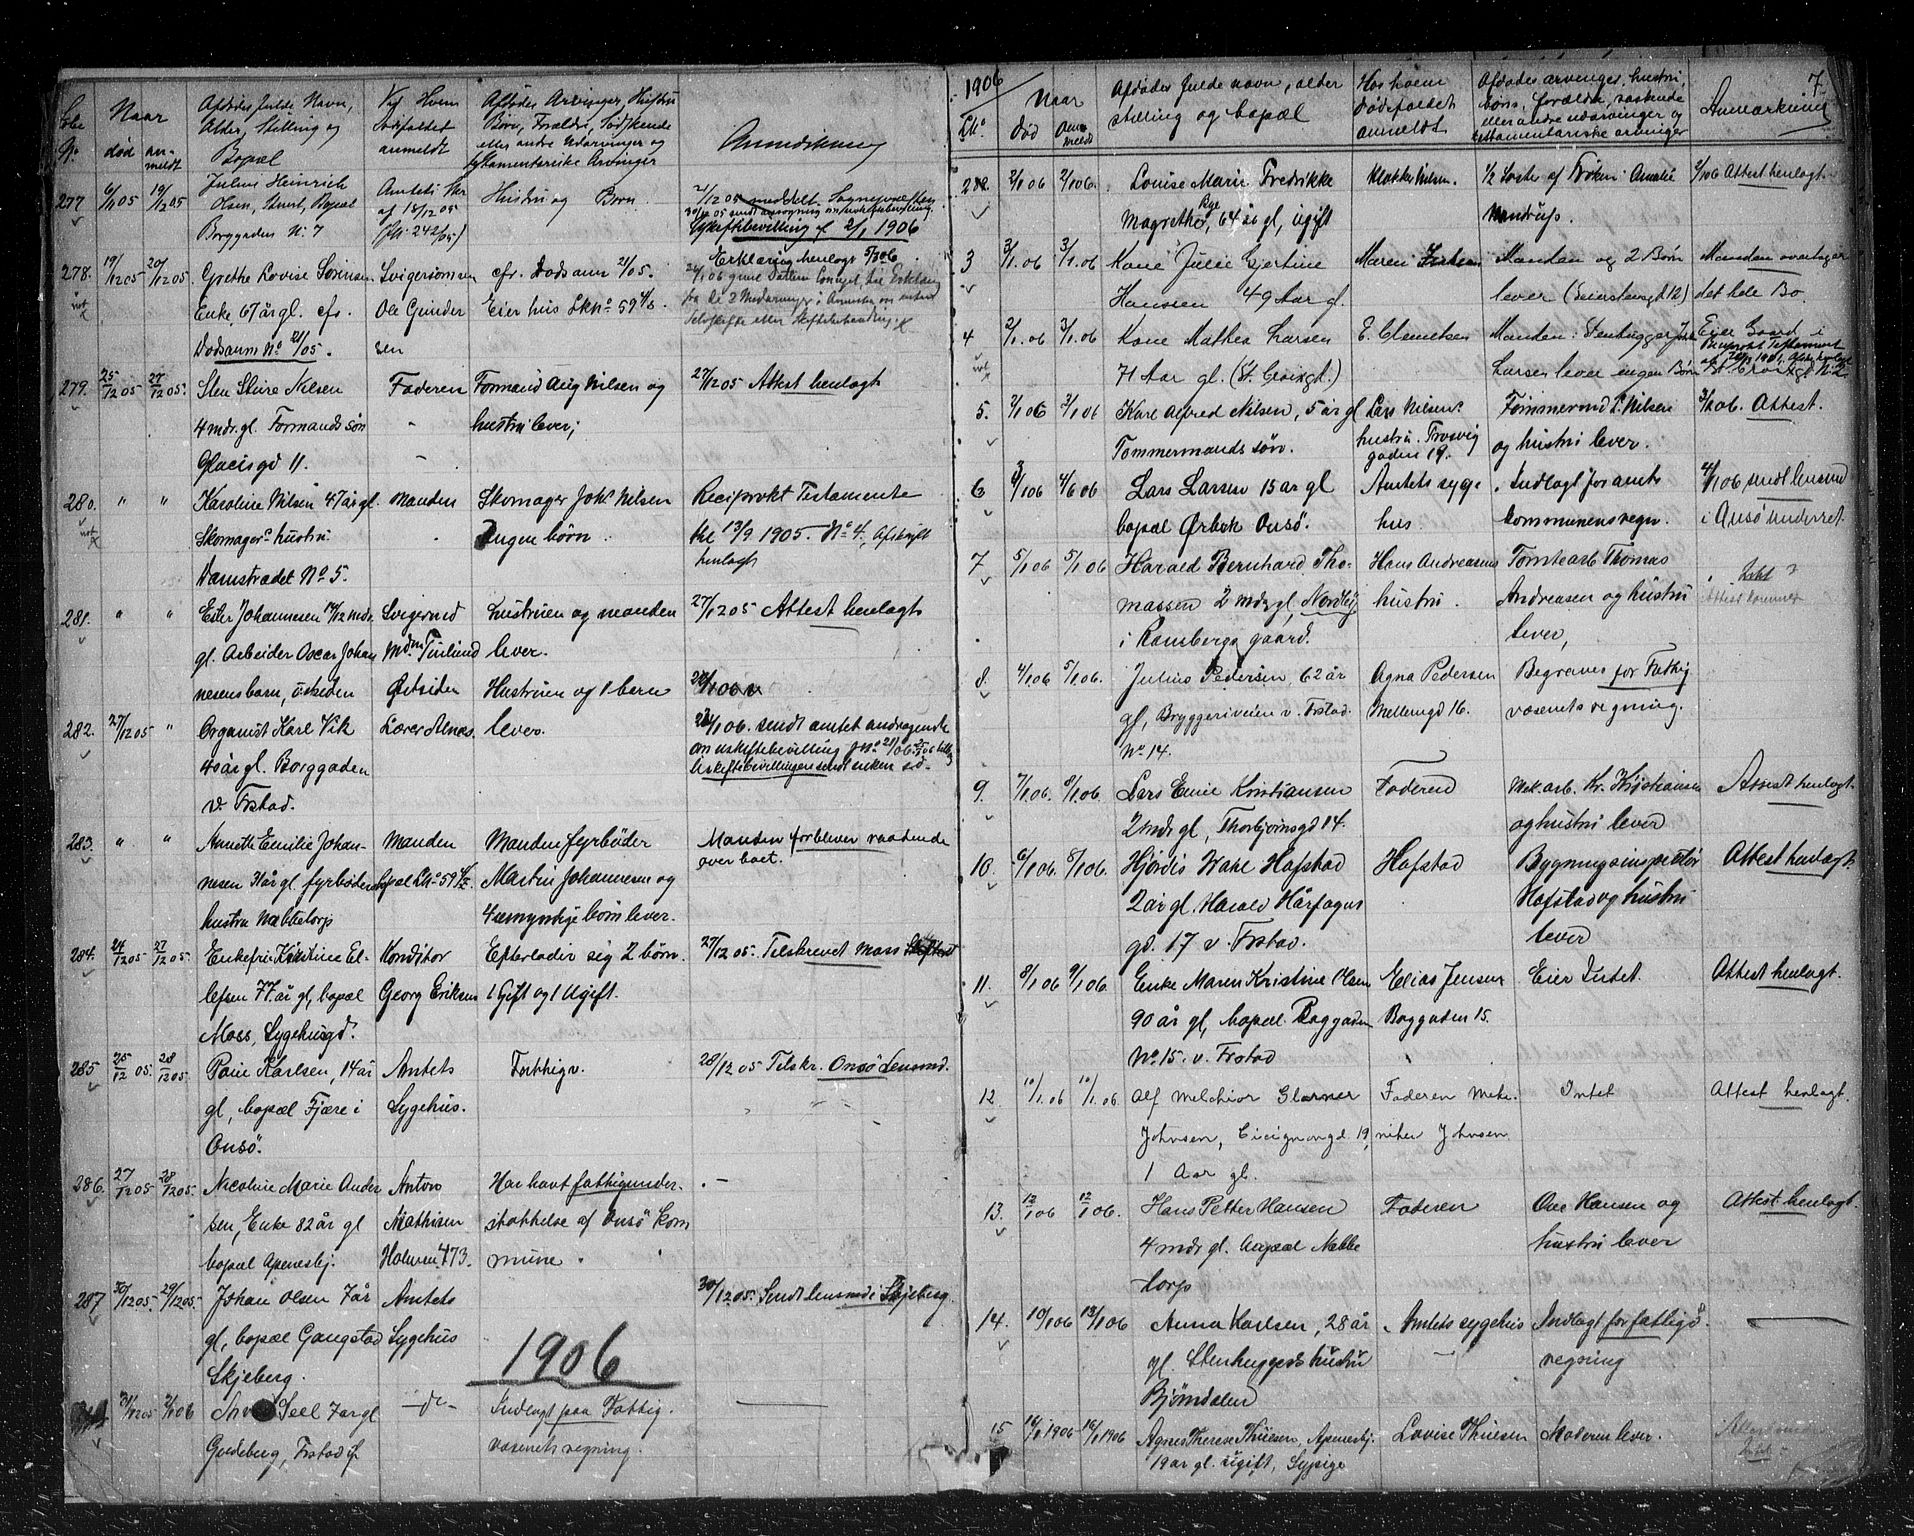 Afdødes fulde Navn,
Alder, Stilling og
Bopæl
Naar
død
an-
meldt
Ved Hvem
Dødsfaldet
anmeldt
Afdødes Arvinger, Hustru
Børn, Forældre, Sødskende
eller andre Udarvinger og
testamentariske Arvinger
Anmærkning
277 6/11 05 19/12 05
Julius Heinrich
Olsen, Bopæl
Borggaden N. 7
af 15/12 05
242/05)
Hustru og Børn
21/12 05 meddelt
Uskiftebevilling af 2/1 1906
278. 19/12 05 20/12 05
Grethe Lovise Sørensen
Enke, 67 år gl. cfr.
Dødsanm No 21/05.
Svigersønnen
Ole Gunder
sen
cfr. Dødsanm 21/05.
Eier hus
Erklæring henlagt
279. 25/12 05 27/12 05.
Sten Sture Nilsen
4 mdr. gl. Formands søn
Glacisgd 11.
Faderen
Formand Aug Nilsen og
hustru lever;
27/12 05 Attest henlagt
280. " "
Karoline Nilsen 47 år gl.
Skomagers hustru
Damstrædet No 5.
Manden
Skomager Johs Nilsen
Ingen børn
Reciprokt Testamente
13/9 1905. No 4, Afskrift
henlagt
281. " "
Ester Johannesen
gl. Arbeider Oscar Johan
nesens barn, Østsiden
Østsiden
hustruen og manden
lever.
27/12 05 Attest henlagt
282. 27/12 05 "
Organist Karl Vik
40 år gl. Borggaden
v. Frstad.
Lærer Alnæs.
Hustruen og 1 barn
lever.
sendt amtet andragende
om uskiftebevilling
283. " "
Annette Emilie Johan-
nesen fyrbøders
hustru Nabbetorp
Manden
Manden fyrbøder
Martin Johannesen og
4 umyndige børn lever.
Manden forbliver raadende
over boet.
284. 24/12 05 27/12 05.
Enkefru Kristine El-
lefsen 77 år gl, bopæl
Moss, Sygehusgd.
Konditor
Georg Eriksen
Efterlader sig 2 børn.
1 Gift og 1 Ugift.
27/12 05. Tilskrevet Moss
285 25/12 05. 28/12 05
Karlsen, 14 år
gl, bopæl Fjære i
Onsø.
Amtets
Sygehus.
Fattigv.
28/12 05 Tilskr. Onsø Lensmd.
286. 27/12 05 28/12 05.
Nicoline Marie Ander
sen, Enke 82 år gl
bopæl Apenesbj.
Anton
Mathisen
Holmen 473.
Har havt fattigunder-
støttelse af Onsø Kom
mune.
287 30/12 05. 29/12 05.
Johan Olsen 7 år
gl, bopæl Gangstad
Skjeberg.
Amtets
Sygehus
30/12 05. Sendt lensmd i Skjeberg.
1906
31/12 05 2/1 06
Seel 7 år gl
Gudeberg, Frstad
-do-
Indlagt paa Fattig.
væsenets regning.
1906
7
L.No
Naar
død
Anm
meldt
Afdødes fulde navn, alder
stilling og bopæl
Hos hvem
dødsfaldet
anmeldt
Afdødes arvinger, hustru,
børn, forældre, søskende
eller andre udarvinger og
testamentariske arvinger
Anmærkning
2/1 06 2/1 06.
Louise Marie Fredrikke
Magrethe, Bye 64 år gl, ugift
Klokker Nilsen.
Frøken Amalie
2/1 06 Attest henlagt.
3 3/1. 06 3/1. 06
Kone Julie Gjertine
Hansen 49 Aar gl.
Maren
Manden og 2 Børn
lever
Manden overtager
det hele Bo.
4 2/1. 06 3/1. 06
Kone Mathea Larsen
71 Aar gl. (St. Croixgd.)
E. Clemetsen
Manden: Stenhugger
Larsen lever ingen Børn
Eier Gaard i
5. 2/1 06 3/1 06
Karl Alfred Nilsen, 5 år gl
Tømmermands søn.
Lars Nilsens
hustru. Trosvig
gaden 19.
Tømmermd L. Nilsen
og hustru lever.
3/1 06. Attest.
6
Lars Larsen 15 år gl
bopæl Ørbek Onsø.
Amtets syge
hus
Indlagt for amts
kommunens regn.
4/1 06 sendt lensmd
i Onsø underret.
7 5/1 06 5/1 06
Harald Bernhard Tho-
massen 2 mdr gl, Nordby
i Rambergs gaard.
Hans Andreasens
hustru.
Tomtearb Thomas
Andreasen og hustru
lever,
8. 4/1 06 5/1 06.
Julius Pedersen, 62 år
gl, Bryggeriveien v. Frstad.
No 14.
Agna Pedersen
Mellemgd 16.
Begraves for Fattig
væsenets regning.
9. 7/1 06. 8/1 06.
Lars Emil Kristiansen
2 mdr gl, Thorbjørnsgd 14.
Faderen
Mek. arb. Kr. Kristiansen
og hustru lever
Attest henlagt.
10. 6/1 06. 8/1 06.
Hjørdis Hafstad
2 år gl. Harald Hårfagres
gd. 17 v. Frstad.
Hafstad
Bygningsinspektør
Hafstad og hustru
lever
Attest henlagt.
11. 8/1 06 9/1 06.
Enke Maren Kristine Olsen
90 år gl, bopæl Baggaden
No 15. v. Frstad
Elias Jensen
Baggaden 15.
Eier Intet.
Attest henlagt.
12. 10/1. 06 10/1. 06
Alf Melchior Glarner
Johnsen, Cicignongd. 19,
1 Aar gl.
Faderen Meka-
niker Johnsen
Intet
Attest henlagt.
13. 12/1 06 12/1 06.
Hans Petter Hansen
4 mdr gl. bopæl Nabbe
torp
Faderen
Ole Hansen og
hustru lever
Attest henlagt.
14. 10/1 06 13/1 06
Anna Karlsen, 28 år
gl. Stenhuggers hustru
Bjørndalen
Amtets sygehus
Indlagt for fattigv.
regning
15 16/1 1906 16/1 1906
Agnes Therese Thuesen, Apenesbj.
19 år gl. ugift, Sypige
Lovise Thuesen
Moderen lever.